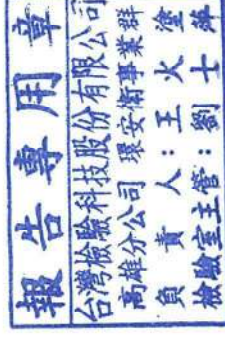 報告專用章
台灣檢驗科技股份有限公司
高雄分公司 環安衛事業群
負責人：王火塗
檢驗室主管：劉十萍